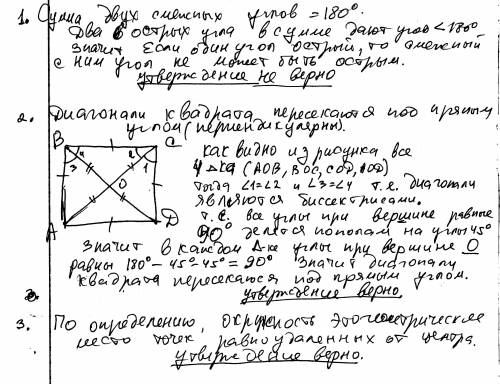 1. Сумма двух смежных углов = 180°.
Два острых угла в сумме дают угол < 180°
значит если один угол острый, то смежный
с ним угол не может быть острым.
утверждение не верно
2. Диагонали квадрата пересекаются под прямым
углом (перпендикулярны).
B C
4 2
3 1
O
A D
как видно из рисунка все
4 Δка (AOB, BOC, COD, AOD)
тогда ∠1=∠2 и ∠3=∠4 т.е. диагонали
являются биссектрисами.
т.е. все углы при вершине равные
90° делятся пополам на углы 45°
значит в каждом Δ-ке углы при вершине O
равны 180° - 45° - 45° = 90° значит диагонали
квадрата пересекаются под прямым углом.
утверждение верно.
3. По определению, окружность это геометрическое
место точек равноудаленных от центра.
утверждение верно.